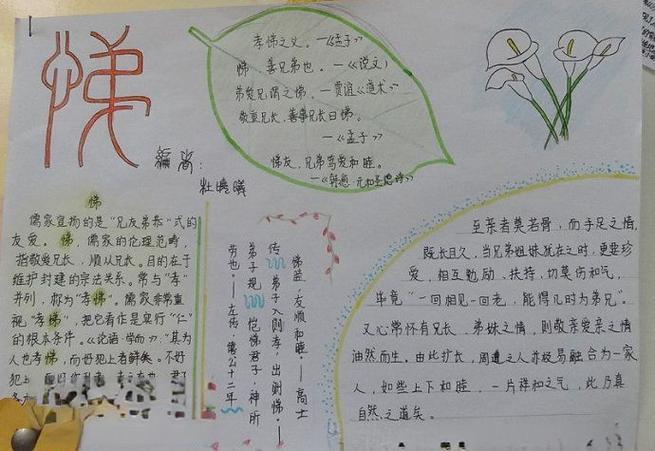 悌
编者：
杜晓曦
孝悌之义。—《孟子》
悌，善兄弟也。—《说文》
弟爱兄谓之悌。—贾谊《道术》
敬重兄长，善事兄长曰悌。
—《孟子》
悌友，兄弟笃爱和睦。
—《韩愈 元和圣德诗》
悌
儒家宣扬的是“兄友弟恭”式的
友爱。悌，儒家的伦理范畴，
指敬爱兄长，顺从兄长。目的在于
维护封建的宗法关系。常与“孝”
并列，称为“孝悌”。儒家非常重
视“孝悌”，把它看作是实行“仁”
的根本条件。《论语·学而》：“其为
人也孝悌，而好犯上者鲜矣。不好
犯上
悌益，友顺和睦。—高士
传 弟子入则孝，出则悌。—
弟子规 恺悌君子，神所
劳也。—左传 僖公十二年
至亲者莫若骨，而手足之情，
既长且久，当兄弟姐妹犹在之时，更要珍
爱，相互勉励、扶持，切莫伤和气，
毕竟“一回相见一回老，能得几时为弟兄”。
又心常怀有兄长、弟妹之情，则敬亲爱亲之情
油然而生。由此扩长，周遭之人亦极易融合为一家
人，如些上下和睦，一片祥和之气，此乃真
自然之道矣。